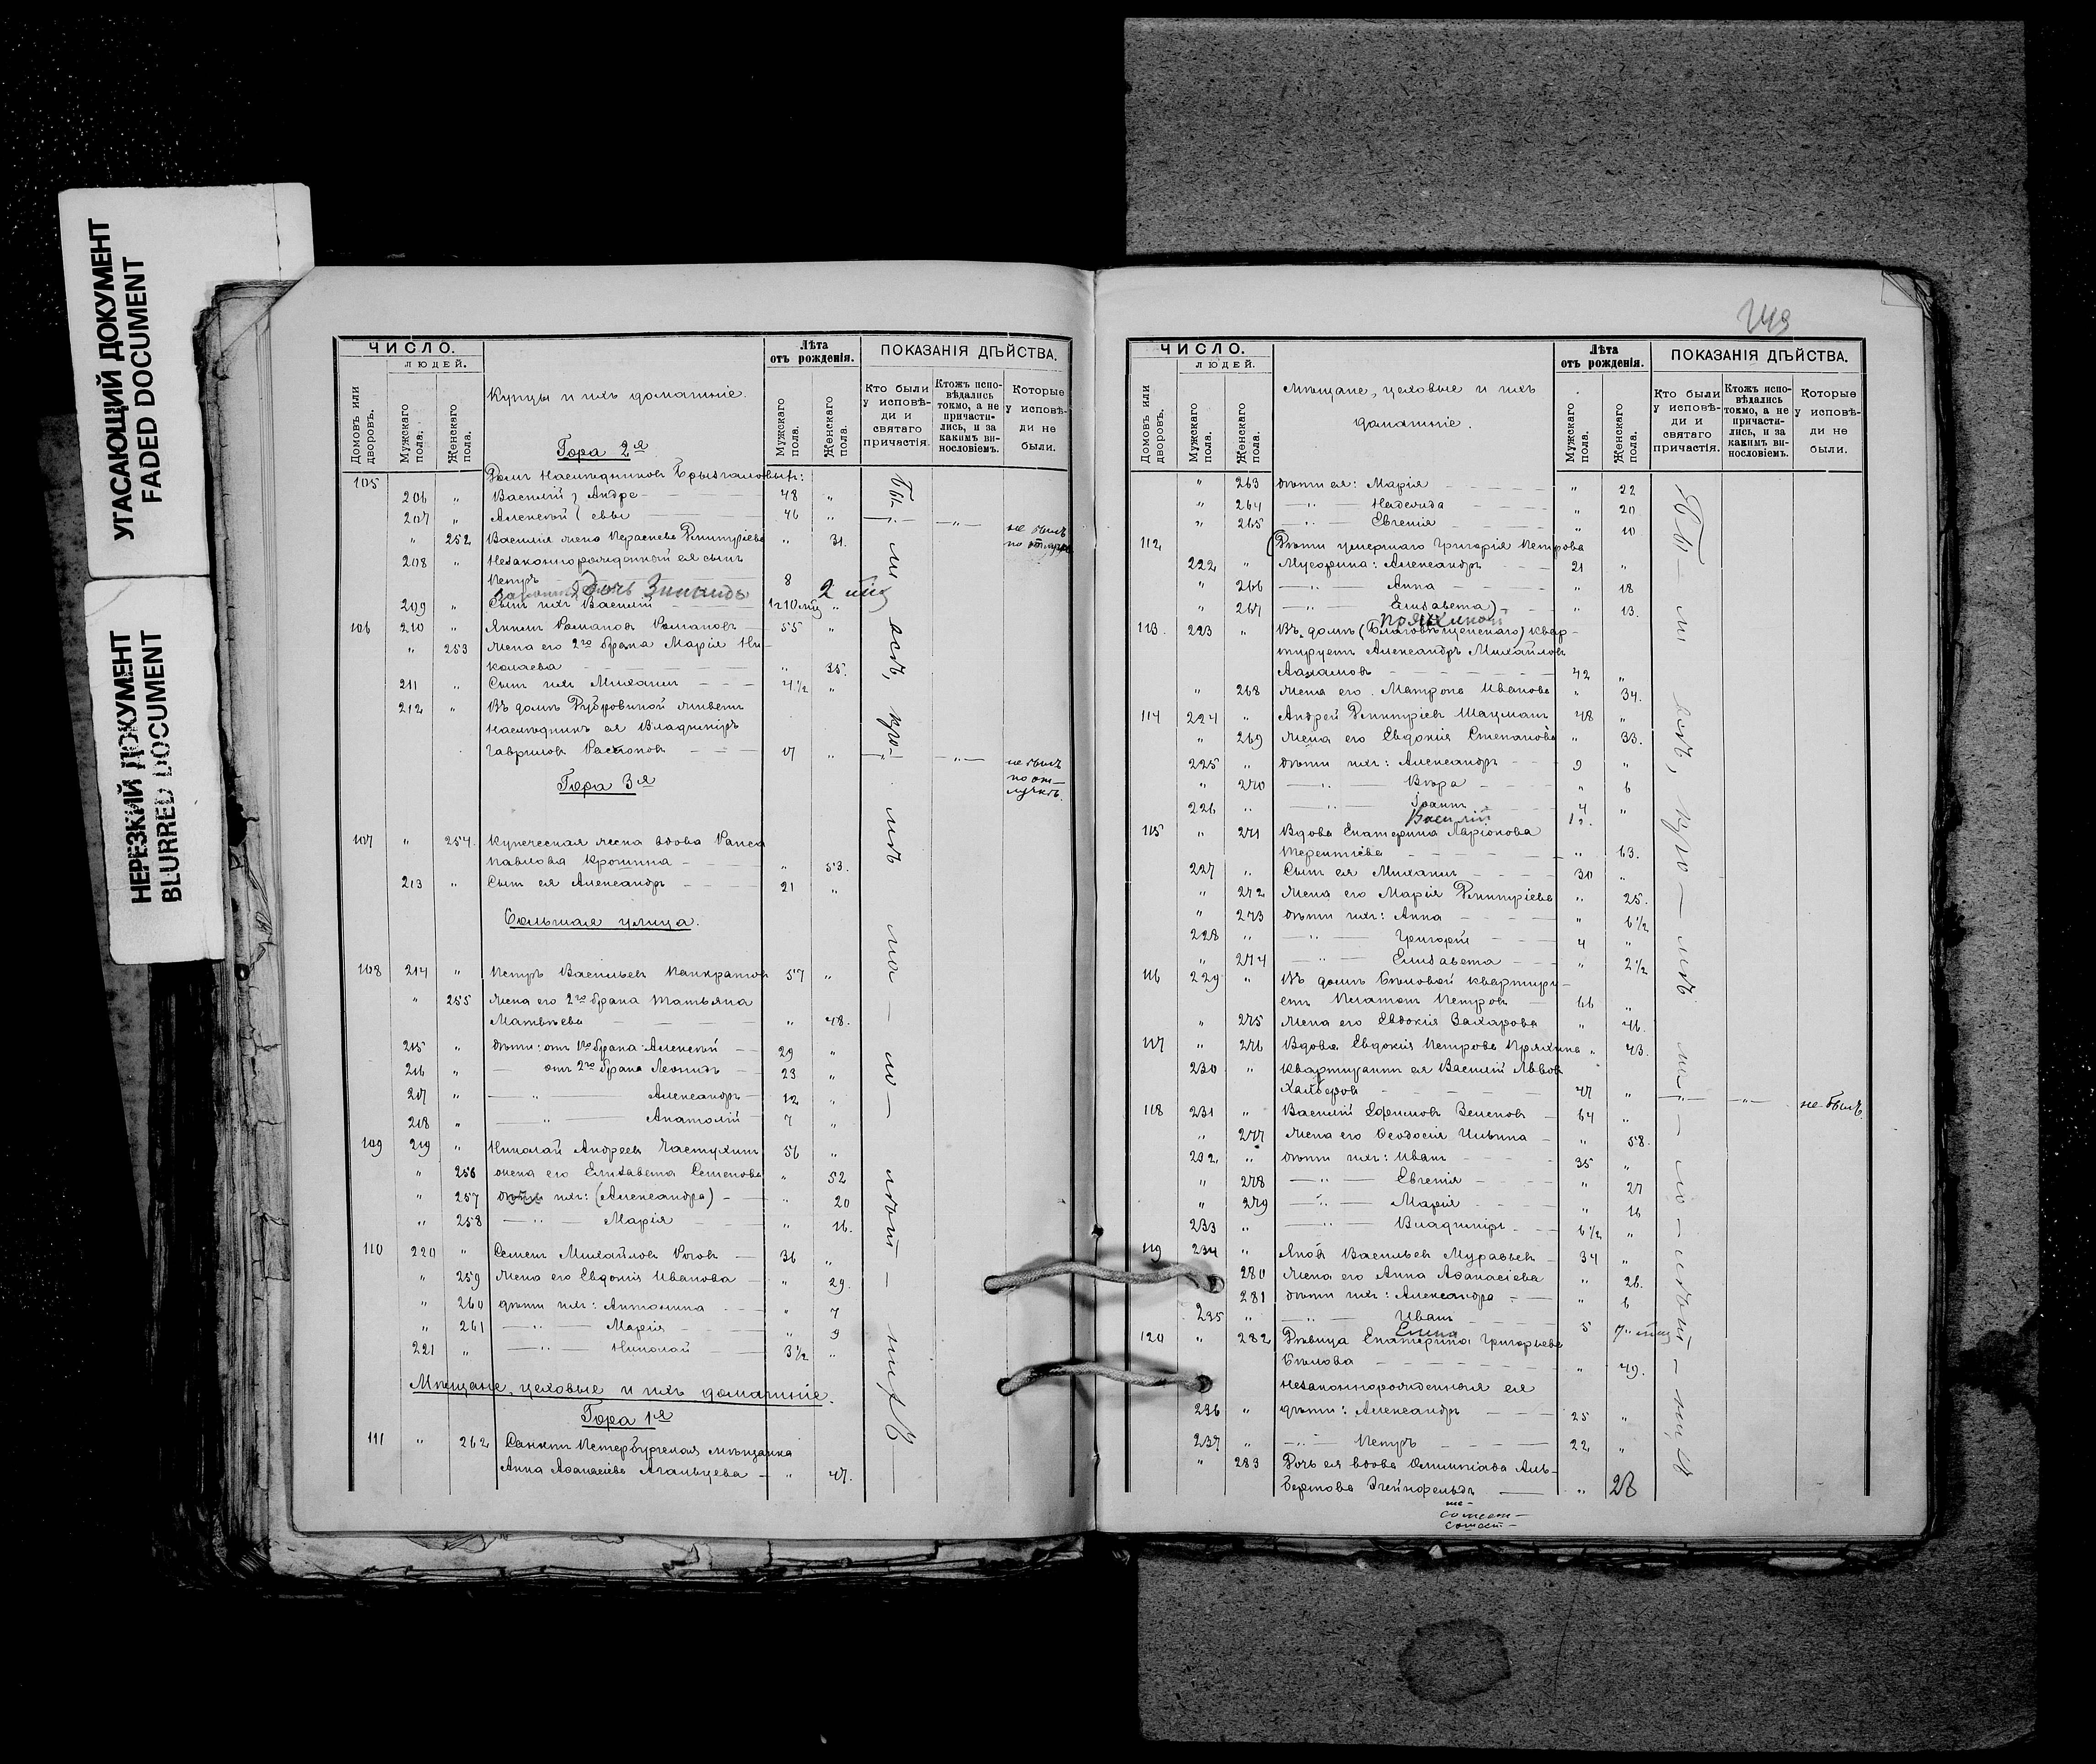 УГАСАЮЩИЙ ДОКУМЕНТ
FADED DOCUMENT
НЕРЕЗКИЙ ДОКУМЕНТ
BLURRED DOCUMENT
ЧИСЛО.
ЛЮДЕЙ.
Домовъ или дворовъ.
Мужскаго пола.
Женскаго пола.
Купцы и ихъ домашніе.
Лѣта отъ рожденія.
Мужскаго пола.
Женскаго пола.
ПОКАЗАНІЯ ДѢЙСТВА.
Кто были у исповѣди и святаго причастія.
Ктожъ исповѣдались токмо, а не причастились, и за какимъ винословіемъ.
Которые у исповѣди не были.
Гора 2я
105 Домъ Наслѣдниковъ Брызгаловыхъ:
206 " Василій } Андре - 48 "
207 " Алексѣй } евы - 46 " - " - не былъ
" 252 Василія жена Параскева Димитріева " 31. по отлучкѣ
208 " Незаконнорожденный ея сынъ
Петръ - 8
дочь Зинаида 2 мѣс
209 " Сынъ ихъ Василій 1г 10 мѣс "
106 210 " Акимъ Романовъ Романовъ - 55 "
" 253 Жена его 2го брака Марія Ни-
колаева - " 35.
211 " Сынъ ихъ Михаилъ - 4½ "
212 " Въ домѣ Дубровиной живетъ
наслѣдникъ ея Владиміръ
Гавриловъ Распоповъ - 17 " - " - не былъ
по от-
лучкѣ.
Гора 3я
107 " 254. Купеческая жена вдова Раиса
Павлова Крошина - " 53.
213 " Сынъ ея Александръ - 21 "
Большая улица.
108 214 " Петръ Васильевъ Панкратовъ 57 "
" 255 Жена его 2го брака Татьяна
Матвѣева - " 48.
215 " дѣти: отъ 1го брака: Алексѣй - 29 "
216 " - отъ 2го брака Леонидъ - 23 "
217 " - " - Александръ - 12 "
218 " - " - Анатолій 7 "
109 219 " Николай Андреевъ Частухинъ 56 "
" 256 жена его Елизавета Семенова " 52
" 257 дочь ихъ: (Александра) - " 20
" 258 - " - Марія - " 16.
110 220 " Семенъ Михайловъ Роговъ - 36 "
" 259 Жена его Евдокія Иванова - " 29.
" 260 дѣти ихъ: Антонина - " 7
" 261 - " - Марія - " 9
221 " - " - Николай - 3½ "
Мѣщане, цеховые и ихъ домашніе.
Гора 1я
111 " 262 Санктпетербургская мѣщанка
Анна Афанасіева Агальцева - " 47.
Бы - ли всѣ, кро - мѣ ма - ло - лѣт - нихъ
ЧИСЛО.
ЛЮДЕЙ.
Домовъ или дворовъ.
Мужскаго пола.
Женскаго пола.
Мѣщане, цеховые и ихъ
домашніе.
Лѣта отъ рожденія.
Мужскаго пола.
Женскаго пола.
ПОКАЗАНІЯ ДѢЙСТВА.
Кто были у исповѣди и святаго причастія.
Ктожъ исповѣдались токмо, а не причастились, и за какимъ винословіемъ.
Которые у исповѣди не были.
" 263 дѣти ея: Марія - " 22
" 264 - " - Надежда " 20
" 265 - " - Евгенія " 10
112 (Дѣти умершаго Григорія Петрова
222 " Мусорина: Александръ - 21 "
" 266 - " - Анна - " 18
" 267 - " - Елизавета) - " 13.
Пряхиной
113. 223 " Въ домѣ (Благовѣщенскаго) квар-
тируетъ Александръ Михайловъ
- 42 "
" 268 Жена его Матрона Иванова " 34.
114 224 " Андрей Димитріевъ Шацманъ 48 "
" 269 Жена его Евдокія Степанова " 33.
225 " дѣти ихъ: Александръ - 9 "
" 270 - " - Вѣра - " 6
226 " - " - Іоаннъ 4 "
Василій 1г.
115 " 271 Вдова Екатерина Ларіонова
Терентіева - " 63.
227 " Сынъ ея Михаилъ - 30 "
" 272 Жена его Марія Димитріева " 25.
" 273 дѣти ихъ: Анна - " 6½
228 " - " - Григорій - 4 "
" 274 - " - Елизавета - " 2½
116 229 " Въ домѣ Бѣловой квартиру-
етъ Платонъ Петровъ - 66 "
" 275 Жена его Евдокія Захарова " 46.
117 " 276 Вдова Евдокія Петрова Пряхина " 43.
230 " Квартирантъ ея Василій Львовъ
- 47 " - " - не былъ
118 231 " Василій Ефимовъ Зеленовъ - 64 "
" 277 Жена его Ѳеодосія Ильина - " 58.
232 " дѣти ихъ: Иванъ - 35 "
" 278 - " - Евгенія - " 27
" 279 - " - Марія - " 16
233 " - " - Владиміръ - 6½ "
119 234 " Яковъ Васильевъ Муравьевъ - 34 "
280 Жена его Анна Афанасіева " 26.
281 дѣти ихъ: Александра - " 6
235 " - " - Иванъ 5
Елена 7 мѣс
120 " 282 Дѣвица Екатерина Григорьева
Бѣлова - " 49.
Незаконнорожденныя ея
236 " дѣти: Александръ - 25 "
237 " - " - Петръ - 22 "
" 283 Дочь ея вдова Олимпіада Аль-
бертова - " 28
Бы - ли всѣ, кро - мѣ ма - ло - лѣт - нихъ